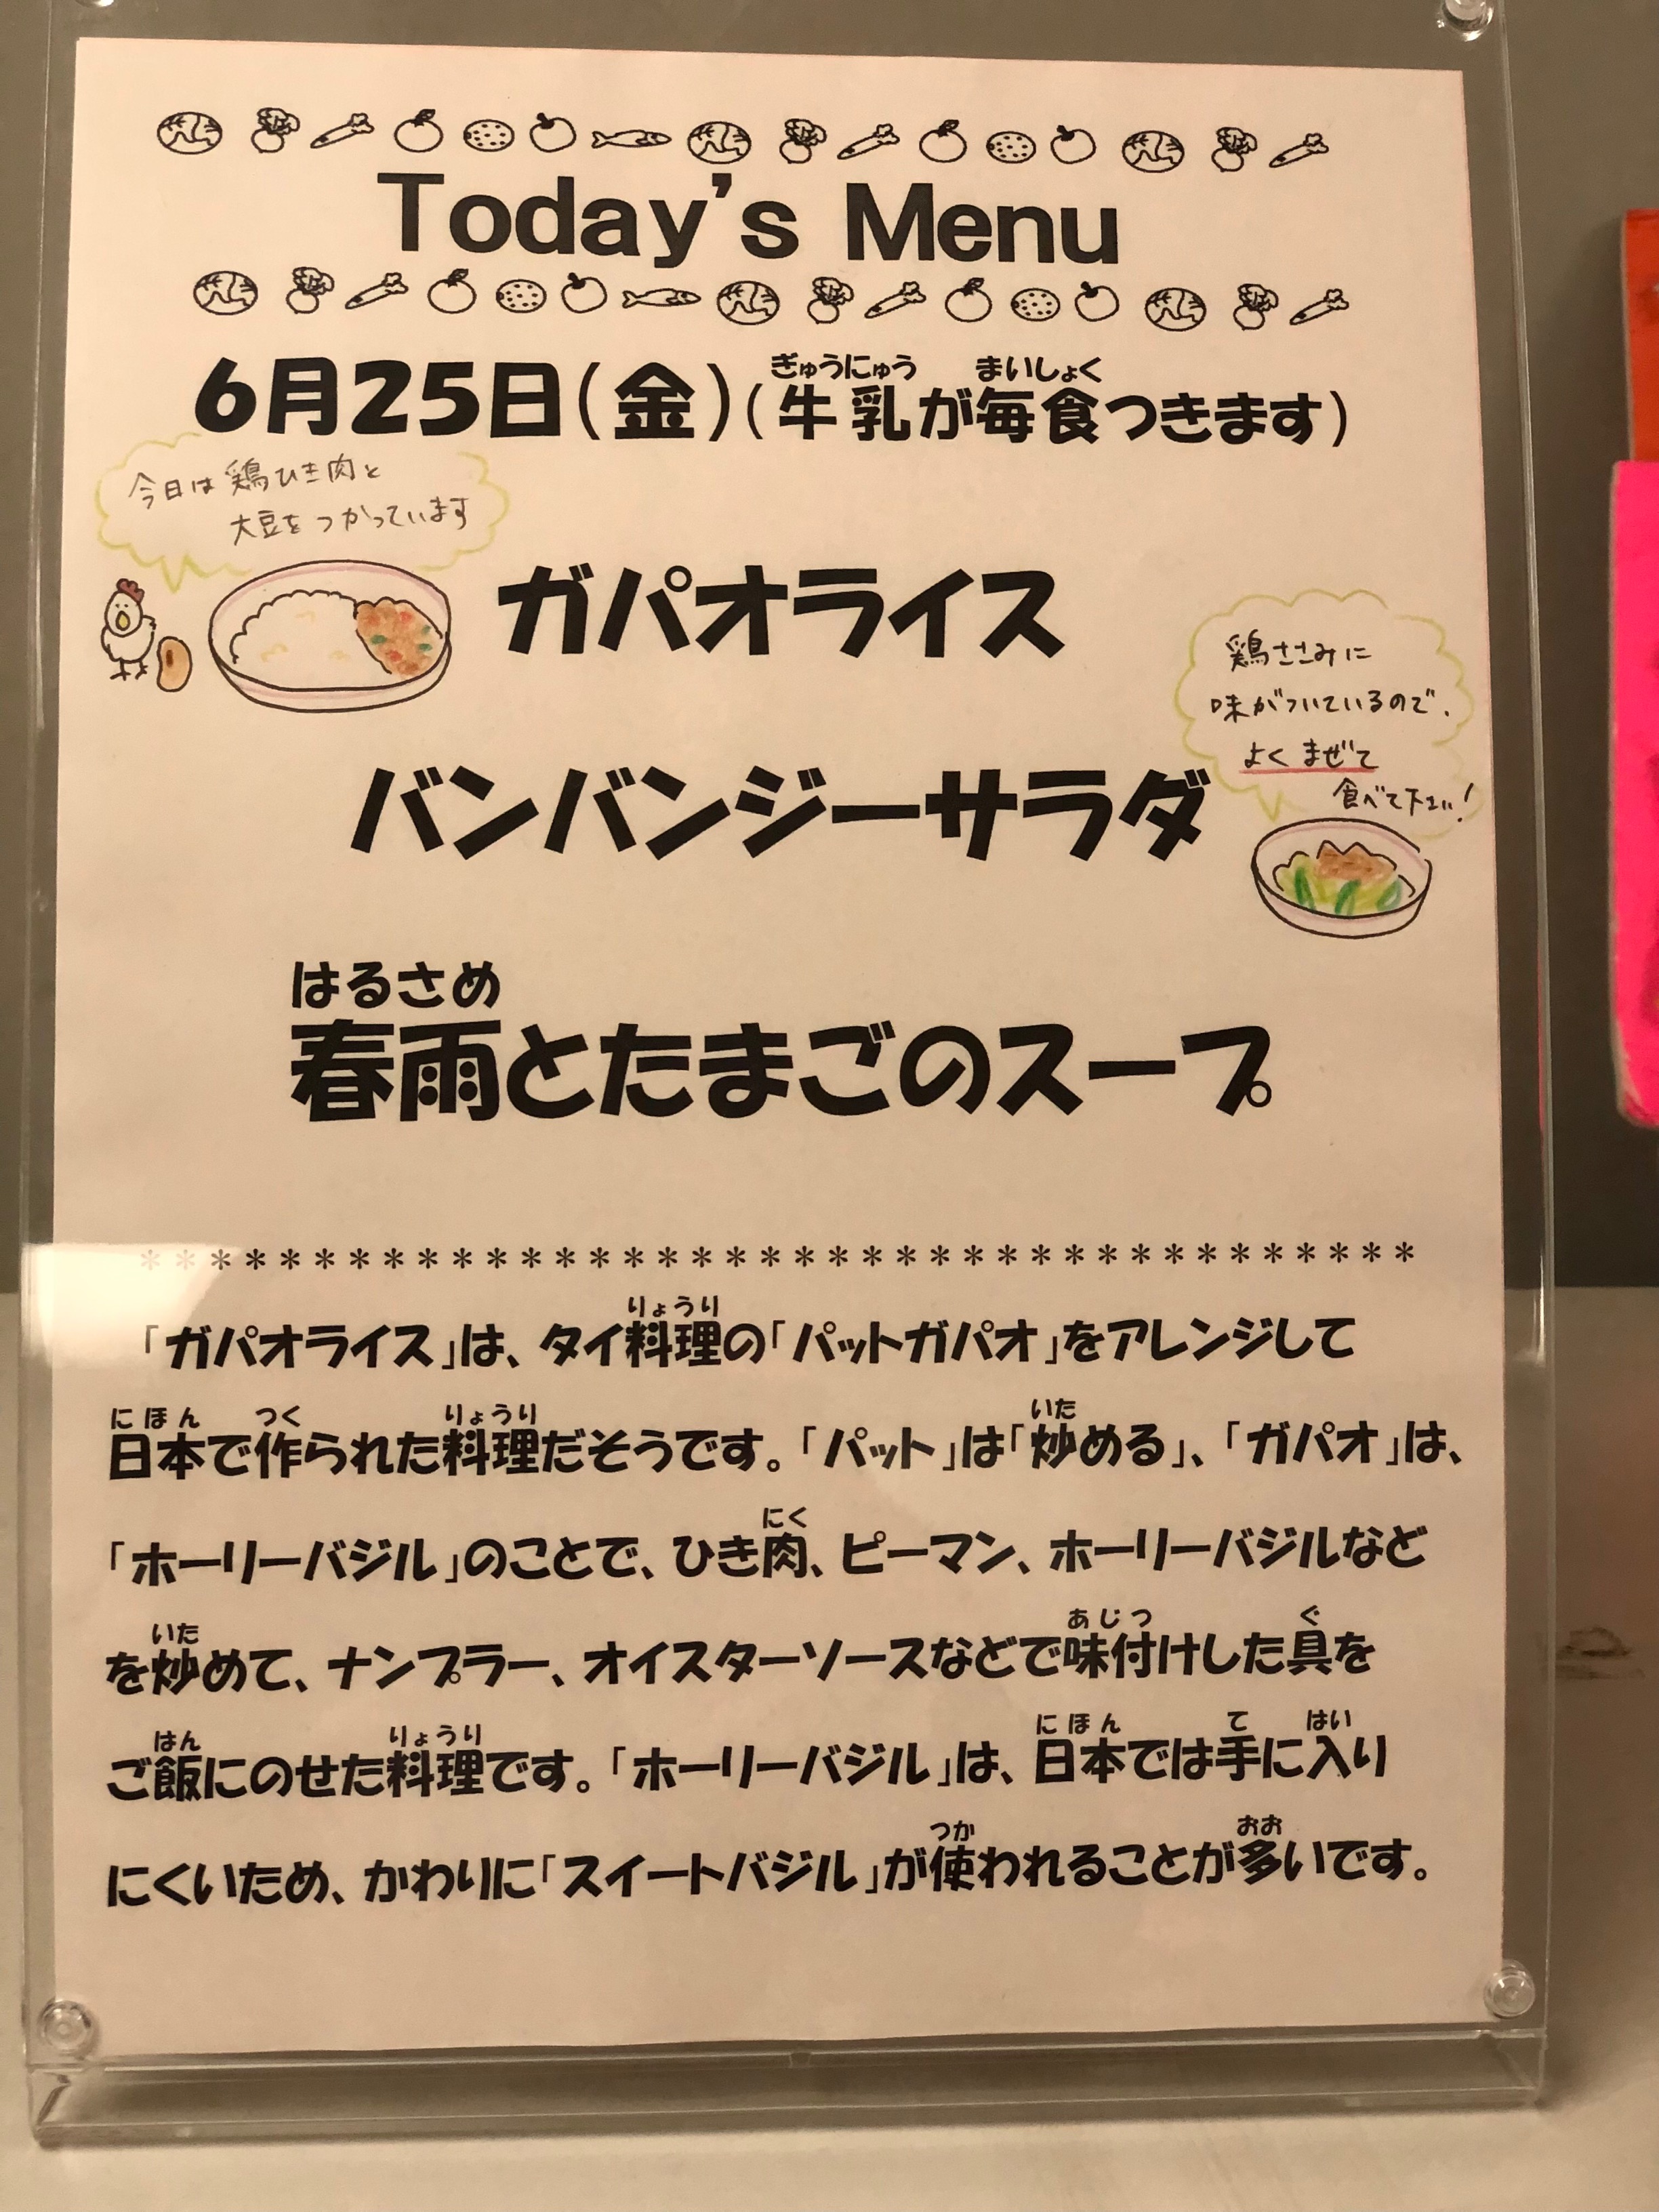 Today's Menu
6月25日(金)(牛乳が毎食つきます)
ぎゅうにゅう まいしょく
今日は鶏ひき肉と
大豆をつかっています
ガパオライス
鶏ささみに
味がついているので、
よくまぜて
食べて下さい!
バンバンジーサラダ
はるさめ
春雨とたまごのスープ
************************************** 
りょうり
「ガパオライス」は、タイ料理の「パットガパオ」をアレンジして
にほん つく りょうり いた
日本で作られた料理だそうです。「パット」は「炒める」、「ガパオ」は、
にく
「ホーリーバジル」のことで、ひき肉、ピーマン、ホーリーバジルなど
いた あじつ ぐ
を炒めて、ナンプラー、オイスターソースなどで味付けした具を
はん りょうり にほん て はい
ご飯にのせた料理です。「ホーリーバジル」は、日本では手に入り
つか おお
にくいため、かわりに「スイートバジル」が使われることが多いです。